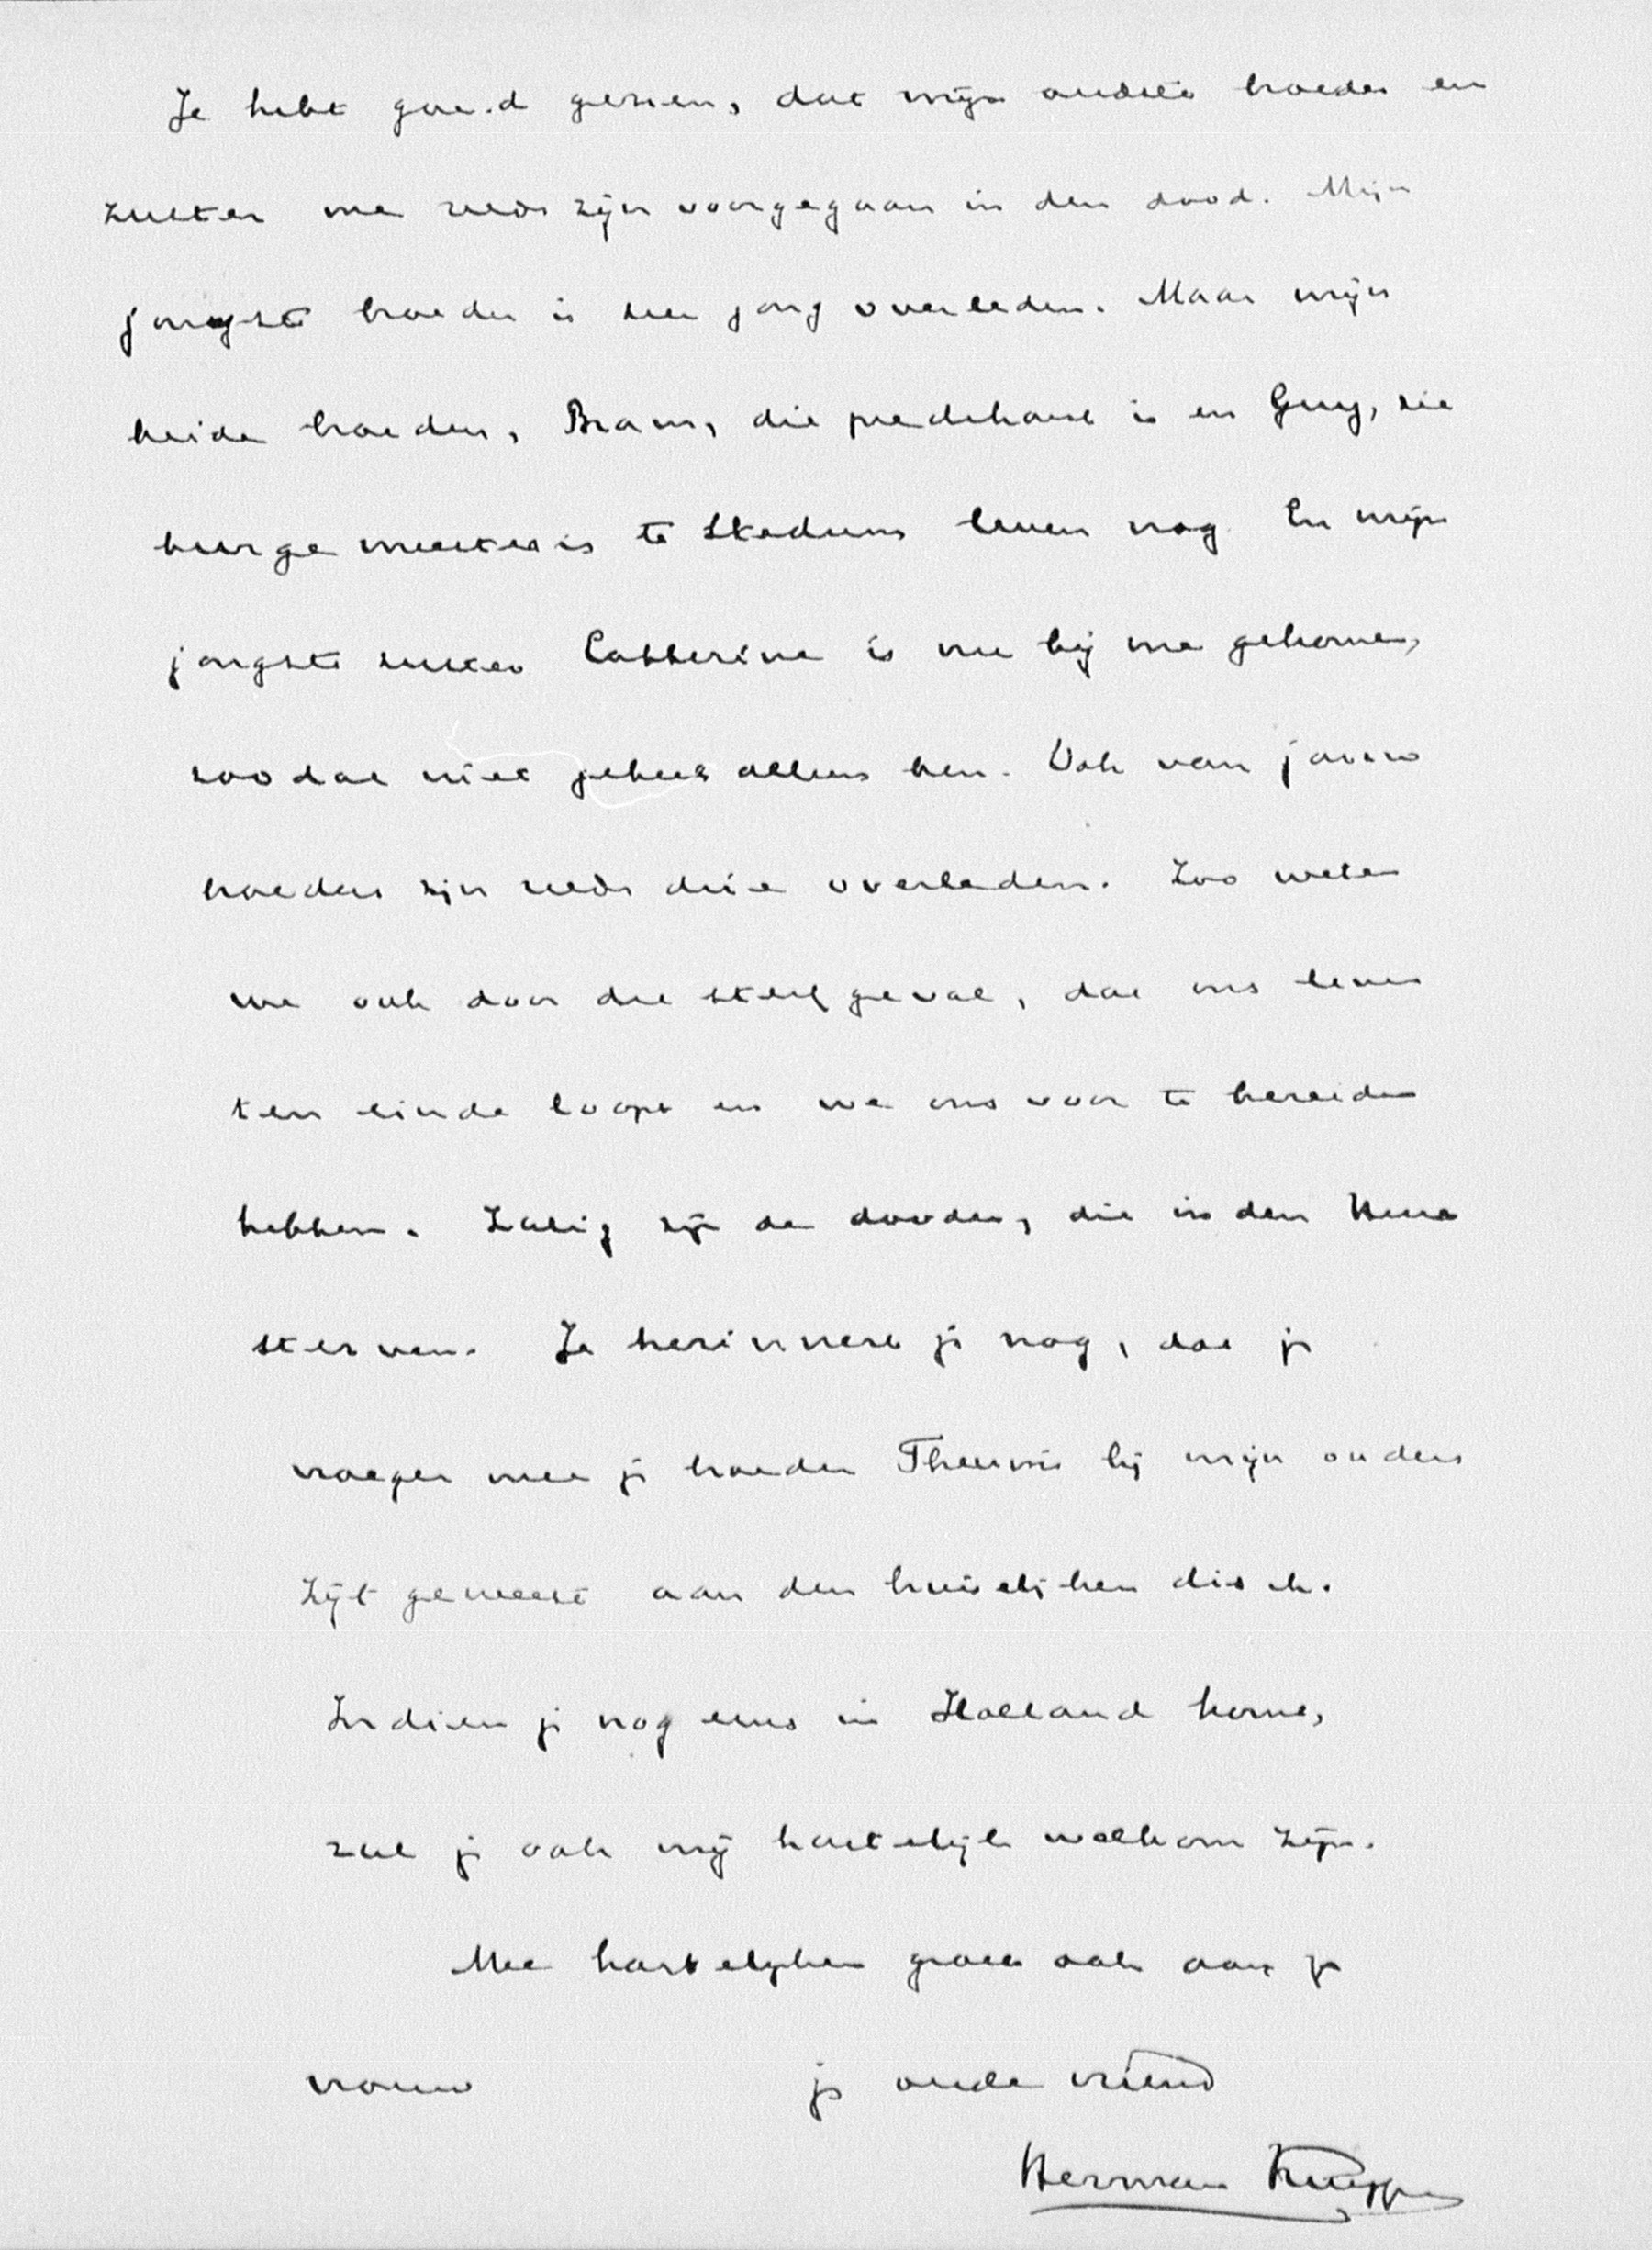 Je hebt goed gezien, dat mijn oudste broeder en
zuster me reeds zijn voorgegaan in den dood. Mijn
jongste broeder is zeer jong overleden. Maar mijn
beide broeders, Bram, die predikant is en Guy, die
burgemeester is te Stedum leven nog. En mijn
jongste zuster Catherine is nu bij me gekomen,
zoodat niet geheel alleen ben. Ook van jouw
broeders zijn reeds drie overleden. Zoo weten
we ook door die sterfgeval, dat ons leven
ten einde loopt en we ons voor te bereiden
hebben. Zalig zijn de dooden, die in den Heere
sterven. Je herinnert je nog, dat je
vroeger met je broeder Theunis bij mijn ouders
zijt geweest aan den huiselijken disch.
Indien je nog eens in Holland komt,
zal je ook mij hartelijk welkom zijn.
Met hartelijken groet ook aan je
vrouw je oude vriend
Herman